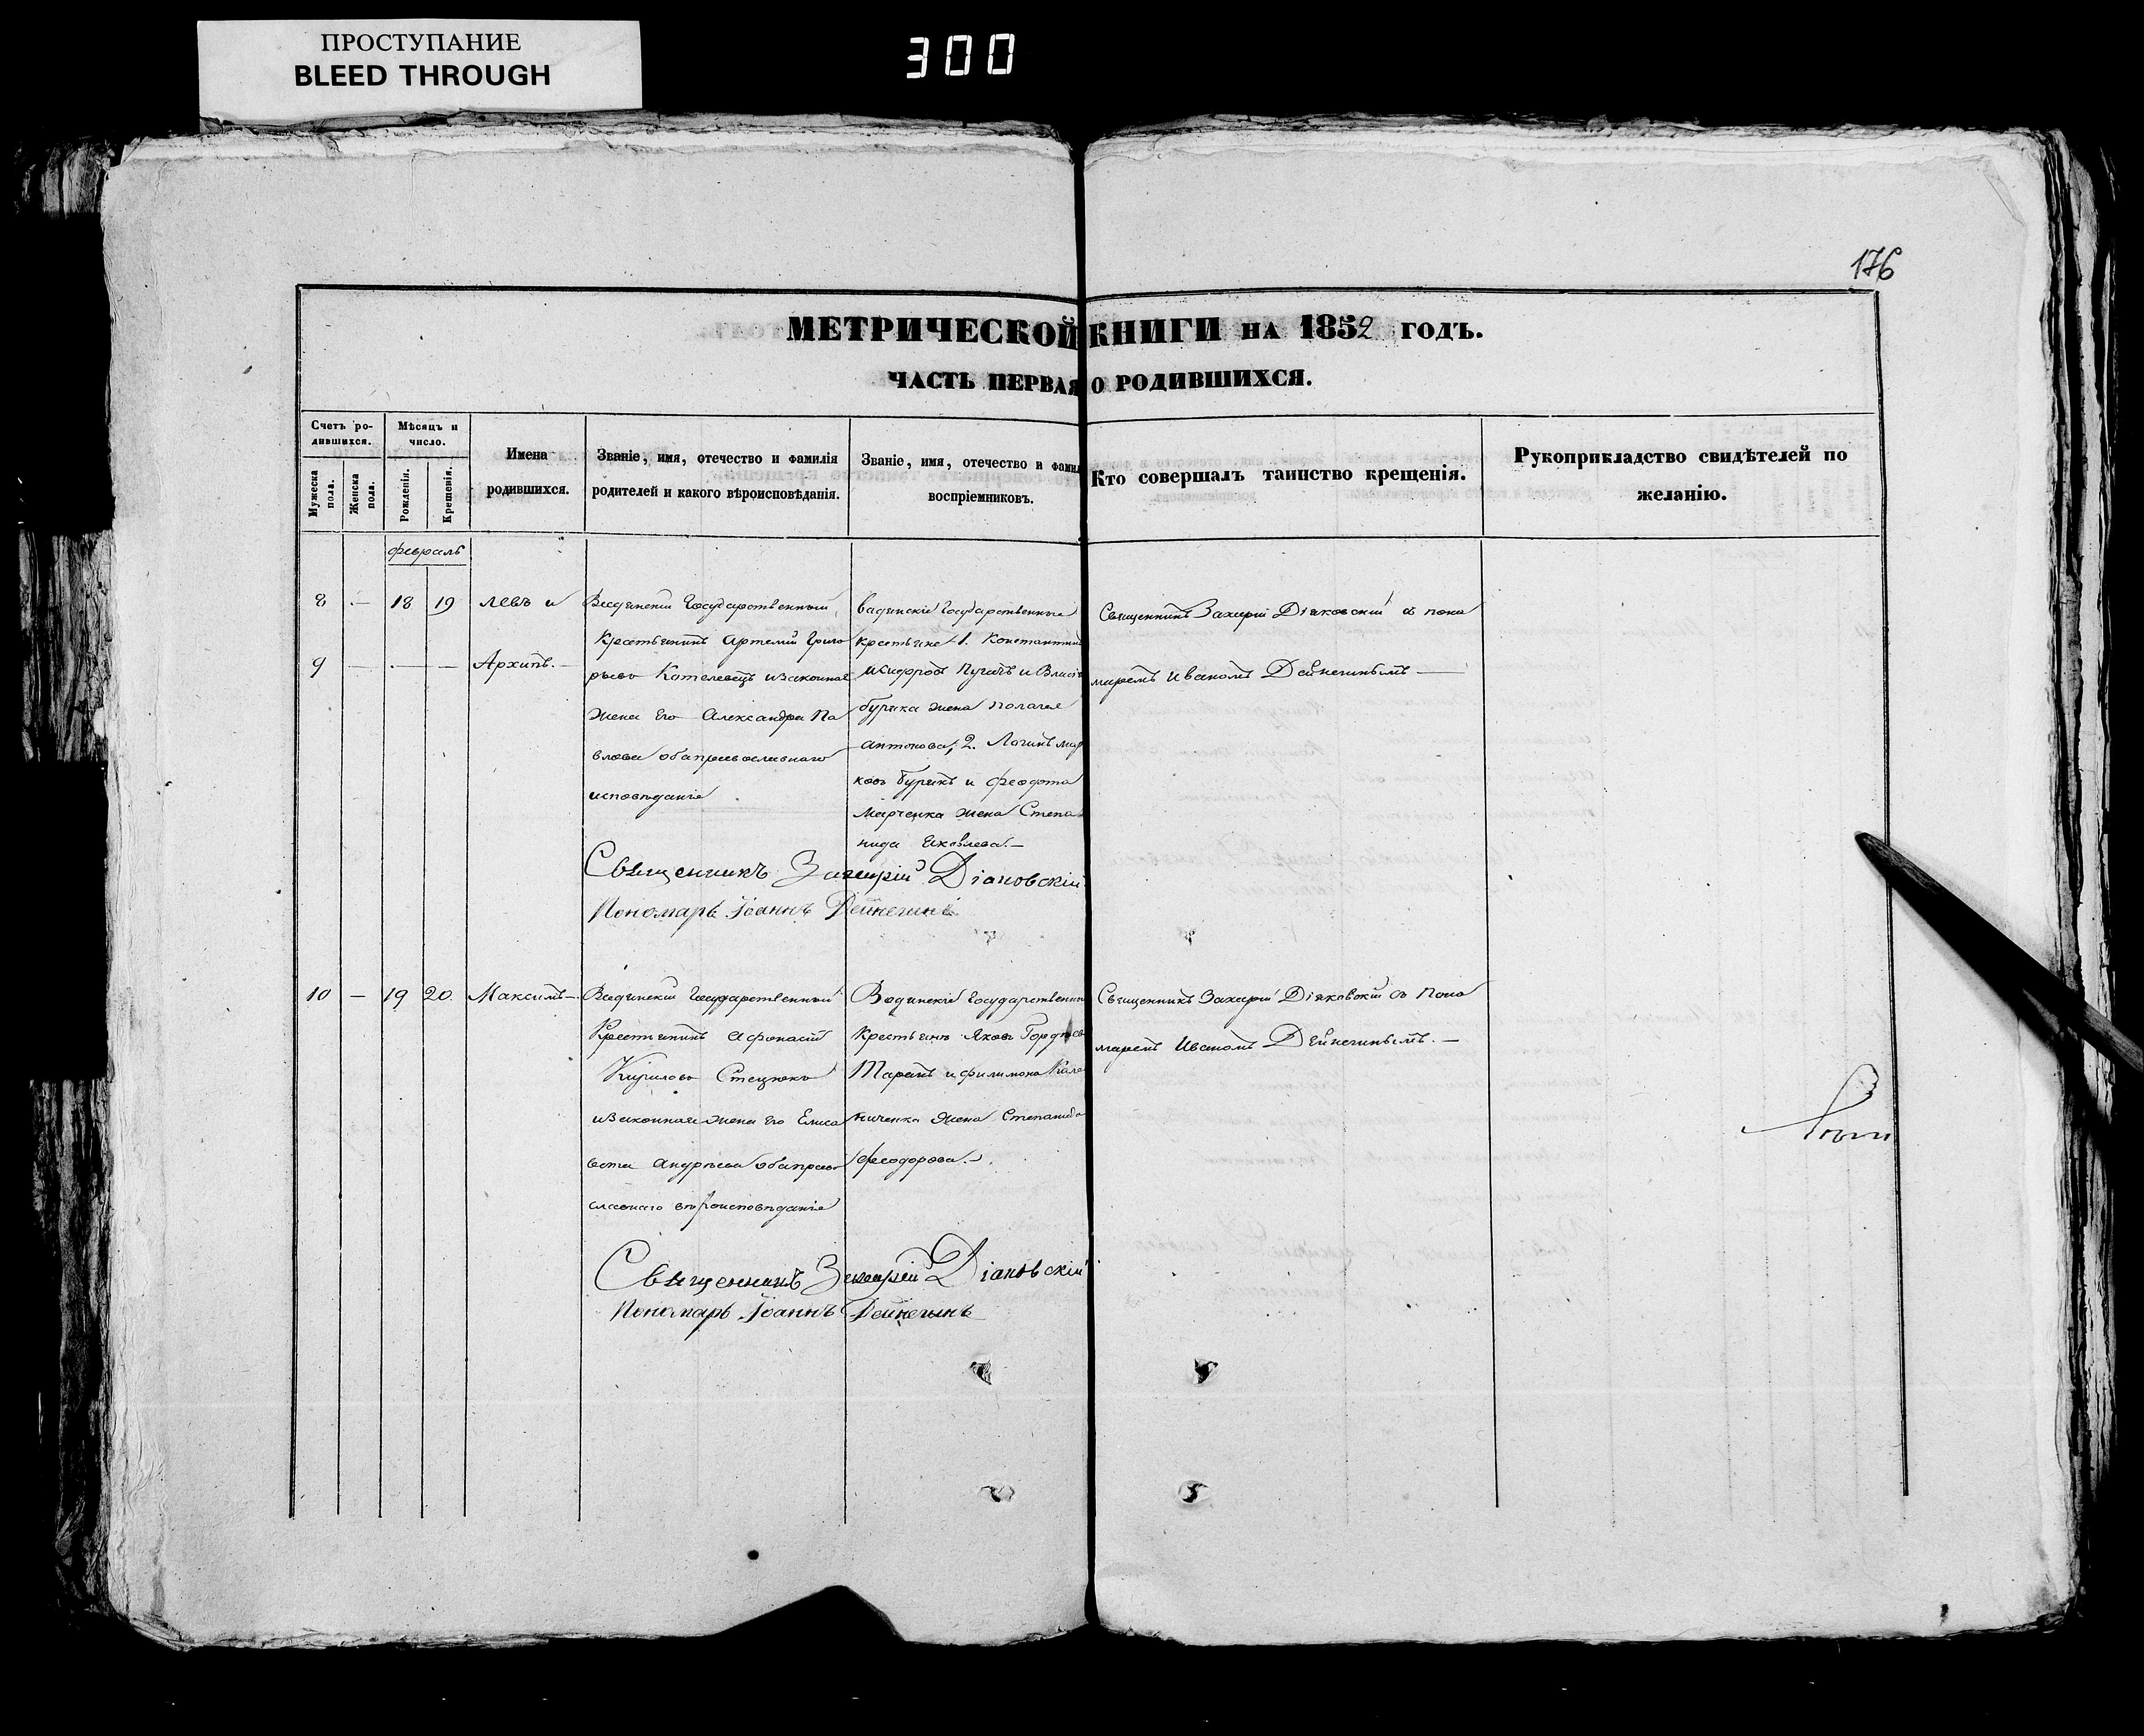 ПРОСТУПАНИЕ
BLEED THROUGH
300
176
МЕТРИЧЕСКОЙ КНИГИ НА 1852 ГОДЪ.
ЧАСТЬ ПЕРВАЯ О РОДИВШИХСЯ.
Счетъ ро-
дившихся.
Мужеска
пола.
Женска
пола.
Мѣсяцъ и
число.
Рожденія.
Крещенія.
Имена
родившихся.
Званіе, имя, отечество и фамилія
родителей и какого вѣроисповѣданія.
Званіе, имя, отечество и фамил
воспріемниковъ.
Кто совершалъ таинство крещенія.
Рукоприкладство свидѣтелей по
желанію.
февраль
8 — 18 19 Левъ и
9 — — — Архипъ.
Государственный
Крестьянинъ Артемій Григо
рьевъ Котелевецъ изаконная
жена его Александра Па
влова обаправославнаго
исповѣданія
Государственные
крестьяне 1. Константинъ
Пугачъ и
жена Пелагея
Антонова, 2. Логинъ
ковъ Бурякъ и Феодота
Марченка жена Степа
нида Яковлева.—
Священникъ Захарій Діаковскій съ поно
маремъ Иваномъ Дейнегинымъ —
Священникъ Захарій Діаковскій
Пономарь Іоаннъ Дейнегинъ
10 — 19 20. Максимъ—
Государственный
Крестьянинъ Афанасій
Кириловъ Стецюкъ
изаконная жена его Елиса
вета Андреева обаправо
славнаго вѣроисповѣданія
Государственные
крестьяне Яковъ
Таранъ и Филимона Кале
ниченка жена Степанида
Феодорова.—
Священникъ Захарій Діаковскій съ Поно
маремъ Иваномъ Дейнегинымъ.—
Священникъ Захарій Діаковскій
Пономарь Іоаннъ Дейнегинъ